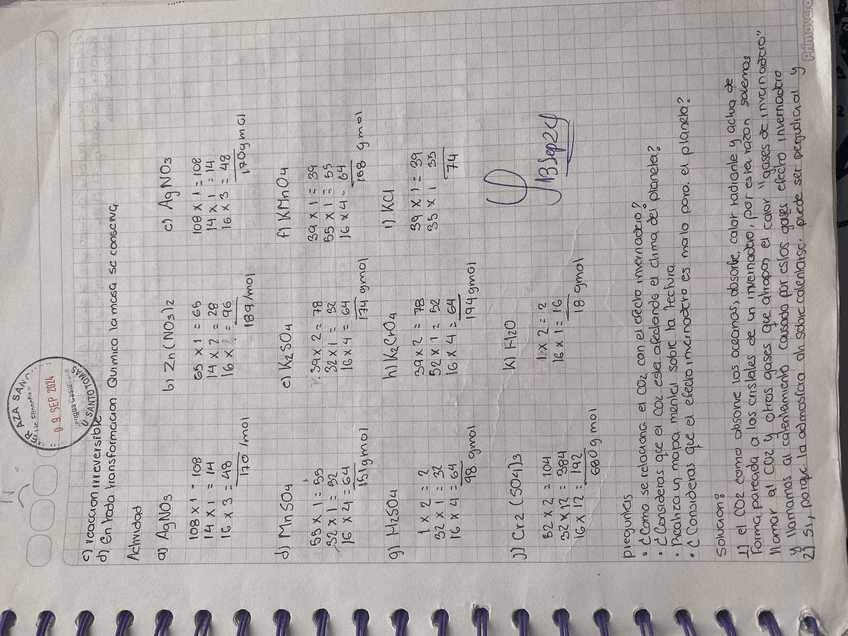 c) reaccion irreversible
d) En toda transformacion Quimica la masa se conserva
R AZA SAN
0 9 SEP 2024
U. SANTO TOMAS
Actividad
a) AgNO3
108 x 1 = 108
14 x 1 = 14
16 x 3 = 48
170 /mol
b) Zn(NO3)2
65 x 1 = 65
14 x 2 = 28
16 x = 96
189/mol
c) AgNO3
108 x 1 = 108
14 x 1 = 14
16 x 3 = 48
170gmol
d) MnSO4
55 x 1 = 55
32 x 1 = 32
16 x 4 = 64
151gmol
e) K2SO4
39 x 2 = 78
32 x 1 = 32
16 x 4 = 64
174 gmol
f) KMnO4
39 x 1 = 39
55 x 1 = 55
16 x 4 = 64
158 gmol
g) H2SO4
1 x 2 = 2
32 x 1 = 32
16 x 4 = 64
98 gmol
h) K2CrO4
39 x 2 = 78
52 x 1 = 52
16 x 4 = 64
194 gmol
i) KCl
39 x 1 = 39
35 x 1 35
74
j) Cr2 (SO4)3
52 x 2 = 104
32 x 12 = 384
16 x 12 = 192
680g mol
k) H2O
1 x 2 = 2
16 x 1 = 16
18 gmol
13 Sep 24
preguntas
• ¿Como se relaciona el CO2 con el efecto invernadero?
• ¿Consideras que el CO2 esta afectando el clima del planeta?
• Realiza un mapa mental sobre la lectura
• ¿Consideras que el efecto invernadero es malo para el planeta?
Solucion:
1) el CO2 como absorve los oceanos, absorbe, calor radiante y actua de
forma pareada a los cristales de un invernadero, por esta razon solemos
llamar al CO2 y otros gases que atrapas el calor "gases de invernadero"
y llamamos al calentamiento causado por estos gases efecto invernadero
2) Si, porque la admosfera al sobre calentarse puede ser perjudicial y
Primavera